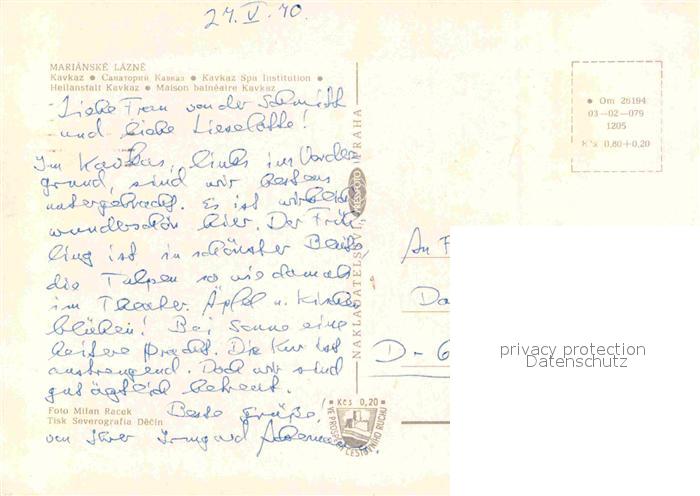 27.V.70.
MARIÁNSKÉ LÁZNĚ
Kavkaz ● Санаторий Кавказ ● Kavkaz Spa Institution ●
Heilanstalt Kavkaz ● Maison balnéaire Kavkaz
Liebe Frau von der Schmidt
und liebe Lieselotte!
Im Kavkas, links im Vorder
grund, sind wir bestens
untergebracht. Es ist wirklich
wunderschön hier. Der Früh-
ling ist in schönster Blüte,
die Tulpen so wie damals
im Theater. Äpfel u. Kirschen
blühen! Bei Sonne eine
heitere Pracht. Die Kur ist
anstrengend. Doch wir sind
gut ärztlich betreut.
Beste Grüße,
von Ihrer Irmgard
Foto Milan Racek
Tisk Severografia Děčín
NAKLADATELSTVÍ PRESSFOTO PRAHA
Kčs 0,20
VE PROSPĚCH CESTOVNÍHO RUCHU
● Om 26194
03-02-079
1205
Kčs 0.80+0,20
An F
Da
D-6
privacy protection
Datenschutz